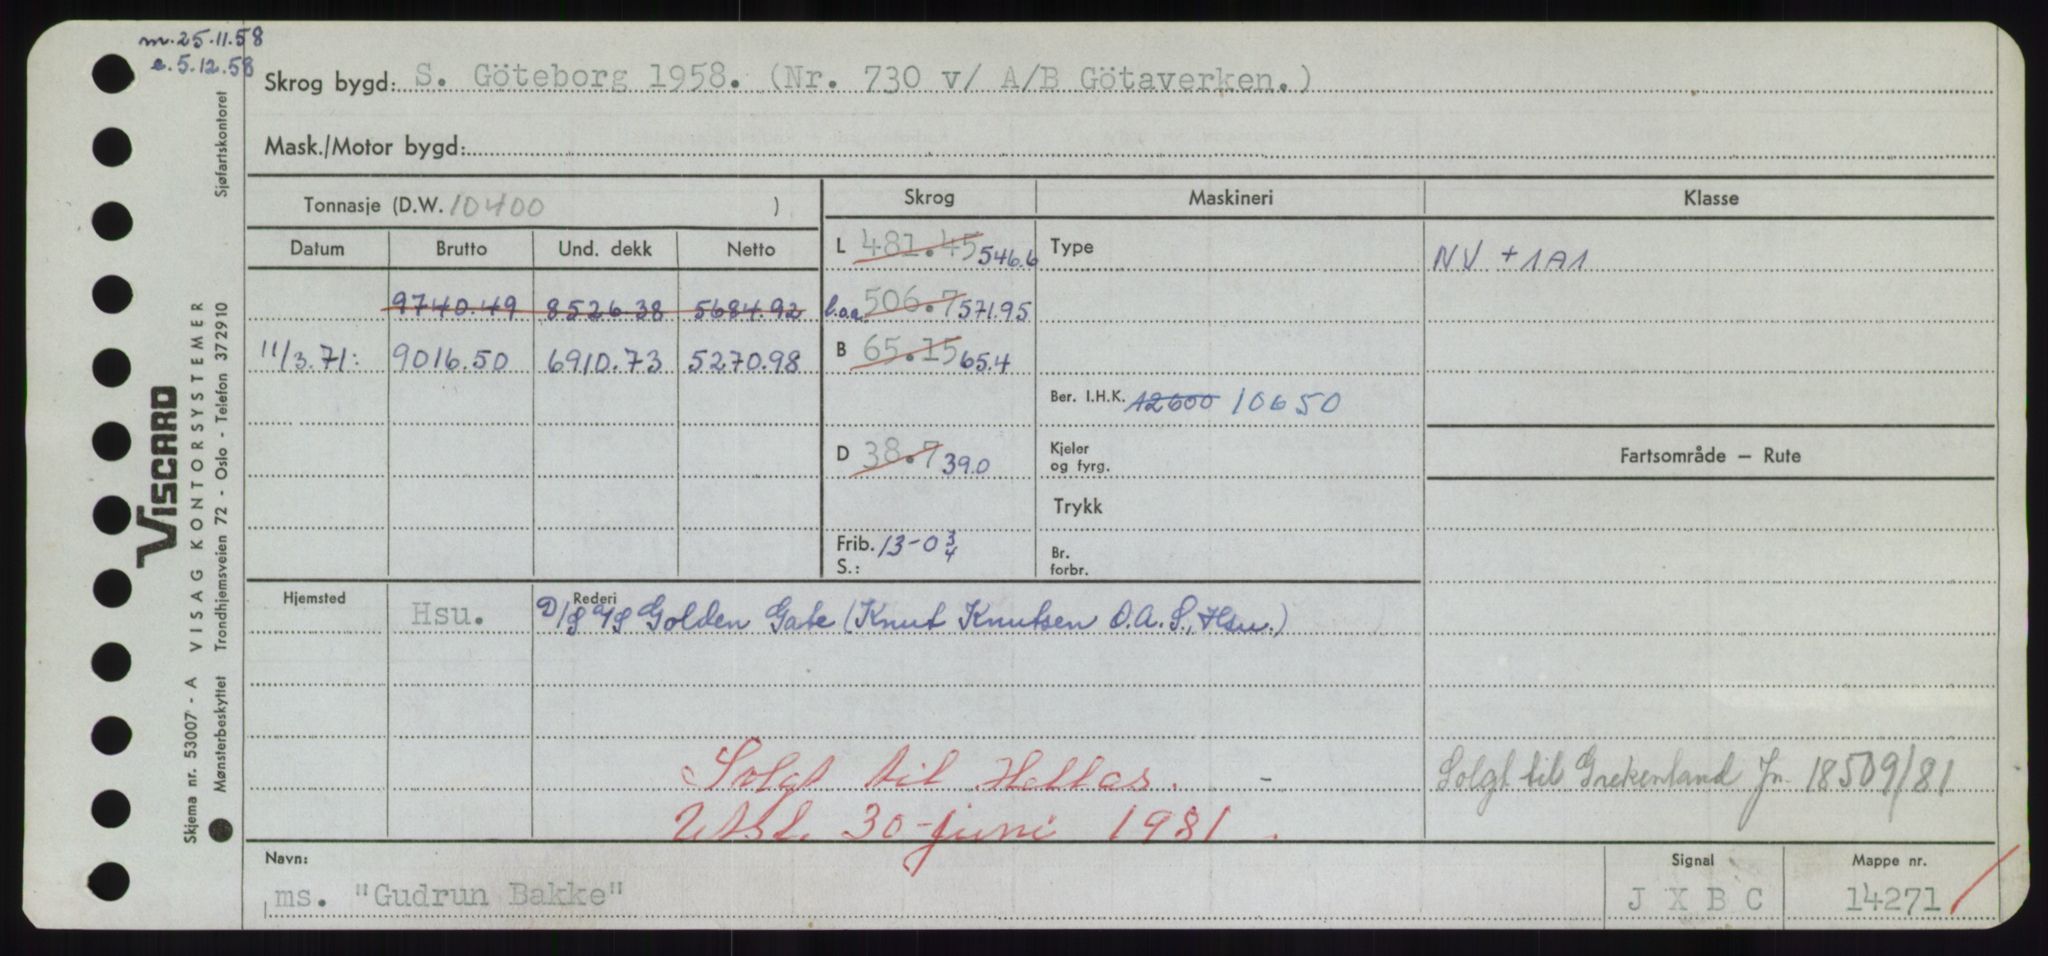 m. 25.11.58
e. 5.12.58
Skrog bygd: S. Göteborg 1958. (Nr. 730 v/ A/B Götaverken.)
Mask./Motor bygd:
Tonnasje (D.W. 10400 )
Skrog Maskineri Klasse
Datum Brutto Und. dekk Netto
L 481.45 546.6 Type NV + 1A1
9740.49 8526.38 5684.92 l.o.a. 506.7 571.95
11/3.71: 9016.50 6910.73 5270.98 B 65.15 65.4
Ber. I.H.K. 12600 10650
D 38.7 39.0 Kjeler og fyrg. Fartsområde — Rute
Trykk
Frib. 13-0 3/4 Br. forbr.
S.:
Hjemsted Hsu. Rederi D/S A/S Golden Gate (Knut Knutsen O.A.S., Hsu.)
Solgt til Hellas. -
Utsl. 30-juni 1981.
Solgt til Grekenland Jn. 18509/81
Navn: ms. "Gudrun Bakke"
Signal J X B C
Mappe nr. 14271
Sjøfartskontoret
VISCARD
VISAG KONTORSYSTEMER
Trondhjemsveien 72 - Oslo - Telefon 372910
Skjema nr. 53007 - A
Mønsterbeskyttet